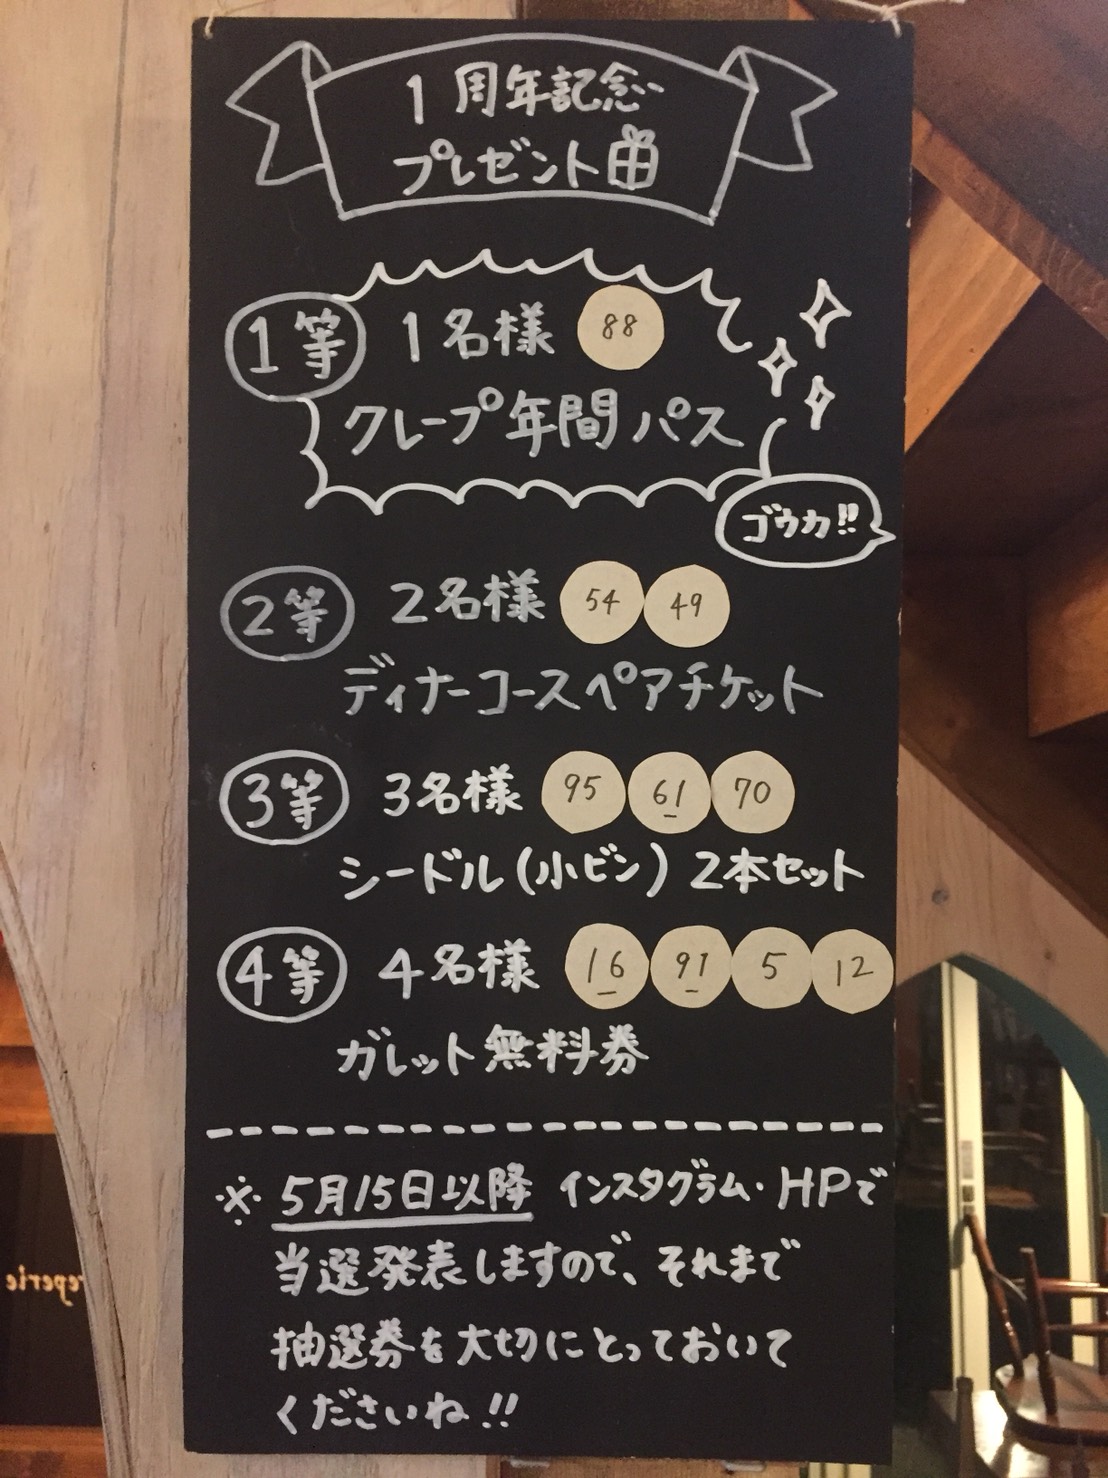 1周年記念
プレゼント
1等 1名様 88
クレープ年間パス
ゴウカ!!
2等 2名様 54 49
ディナーコースペアチケット
3等 3名様 95 61 70
シードル(小ビン)2本セット
4等 4名様 16 91 5 12
ガレット無料券
※ 5月15日以降 インスタグラム・HPで
当選発表しますので、それまで
抽選券を大切にとっておいて
くださいね!!